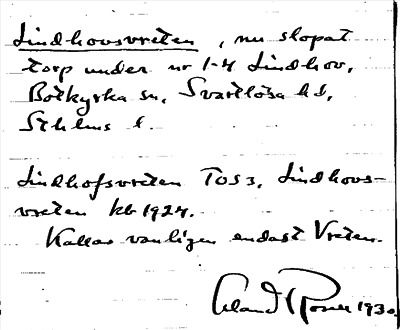 Lindhovsvreten, nu slopat
torp under nr 1-4 Lindhov,
Botkyrka sn, Svartlösa hd,
Sthlms l.
Lindhofsvreten TOS3, Lindhovs-
vreten kb 1924.
Kallas vanligen endast Vreten.
Erland Rosell 1930